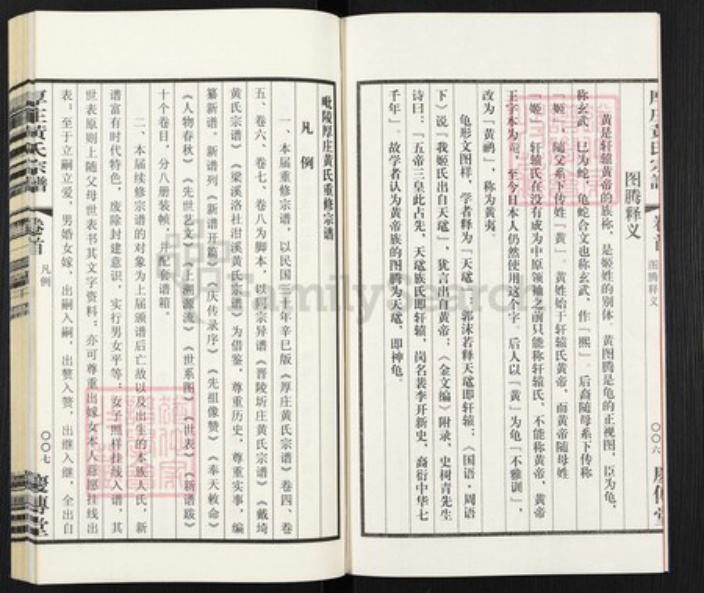 图腾释义
黄是轩辕黄帝的族称，是姬姓的别体。黄图腾是龟的正视图，臣为龟，
称玄武，巳为蛇，龟蛇合文也称玄武，作「熙」。后裔随母系下传称
「姬」，随父系下传姓「黄」。黄姓始于轩辕氏黄帝，而黄帝随母姓
「姬」。轩辕氏在没有成为中原领袖之前只能称轩辕氏，不能称黄帝，黄帝
王字本为黾，至今日本人仍然使用这个字。后人以「黄」为龟「不雅训」，
改为「黄鹂」，称为黄夷。
龟形文图样，学者释为「天鼋」；郭沫若释天鼋即轩辕；《国语·周语
下》说「我姬氏出自天鼋」，犹言出自黄帝；《金文编》附录，史树青先生
诗曰：「五帝三皇此占先，天鼋族氏即轩辕；岗名裴李开新史，裔衍中华七
千年」。故学者认为黄帝族的图腾为天鼋，即神龟。
厚庄黄氏宗谱
卷首
图腾释义
〇〇六
毗陵厚庄黄氏重修宗谱
凡例
一、本届重修宗谱，以民国三十年辛巳版《厚庄黄氏宗谱》卷四、卷
五、卷六、卷七、卷八为脚本，以同宗异谱《晋陵圻庄黄氏宗谱》《戴埼
黄氏宗谱》《梁溪洛社泔溪黄氏宗谱》为借鉴，尊重历史，尊重实事，编
纂新谱。新谱列《新谱开篇》《庆传录序》《先祖像赞》《奉天敕命》
《人物春秋》《先世艺文》《上溯源流》《世系图》《世表》《新谱跋》
十个卷目，分八册装帧，并配套谱箱。
二、本届续修宗谱的对象为上届颁谱后亡故以及出生的本族人氏，新
谱富有时代特色，废除封建意识，实行男女平等：女子照样挂线入谱，其
世表原则上随父母世表书其文字资料；亦可尊重出嫁女本人意愿挂线出
表。至于立嗣立爱，男婚女嫁，出嗣入嗣，出赘入赘，出继入继，全出自
厚庄黄氏宗谱
卷首
凡例
〇〇七
庆传堂
FamilySearch